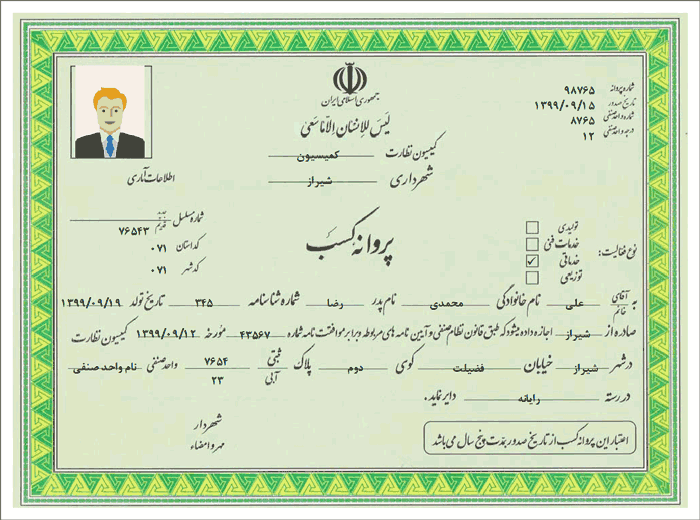 جمهوری اسلامی ایران
لَیسَ لِلاِنسٰانِ اِلّا مٰا سَعیٰ
شماره پروانه ۹۸۷۶۵
تاریخ صدور ۱۳۹۹/۰۹/۱۵
شماره واحد صنفی ۸۷۶۵
درجه واحد صنفی ۱۲
کمیسیون نظارت کمیسیون
شهرداری شیراز
اطلاعات آماری
شماره مسلسل جدید
قدیم ۷۶۵۴۳
کد استان ۰۷۱
کد شهر ۰۷۱
پروانه کسب
نوع فعالیت:
تولیدی
خدمات فنی
خدماتی ✓
توزیعی
به آقای خانم علی نام خانوادگی محمدی نام پدر رضا شماره شناسنامه ۳۴۵ تاریخ تولد ۱۳۹۹/۰۹/۱۹
صادره از شیراز اجازه داده میشود که طبق قانون نظام صنفی و آیین نامه های مربوطه و برابر موافقت نامه شماره ۴۳۵۶۷ مورخه ۱۳۹۹/۰۹/۱۲ کمیسیون نظارت
در شهر شیراز خیابان فضیلت کوی دوم پلاک ثبتی ۷۶۵۴ آبی ۲۳ واحد صنفی نام واحد صنفی
در رسته رایانه دایر نماید.
اعتبار این پروانه کسب از تاریخ صدور بمدت پنج سال می باشد
شهردار
مهر و امضاء